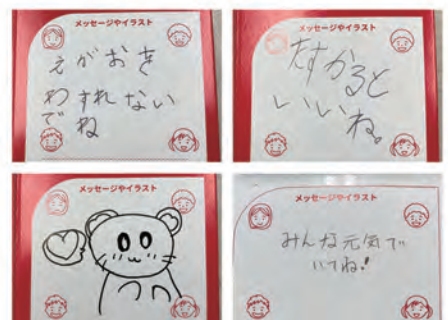 メッセージやイラスト
えがおを
わすれない
でね
メッセージやイラスト
たすかると
いいね。
メッセージやイラスト
メッセージやイラスト
みんな元気で
いてね!